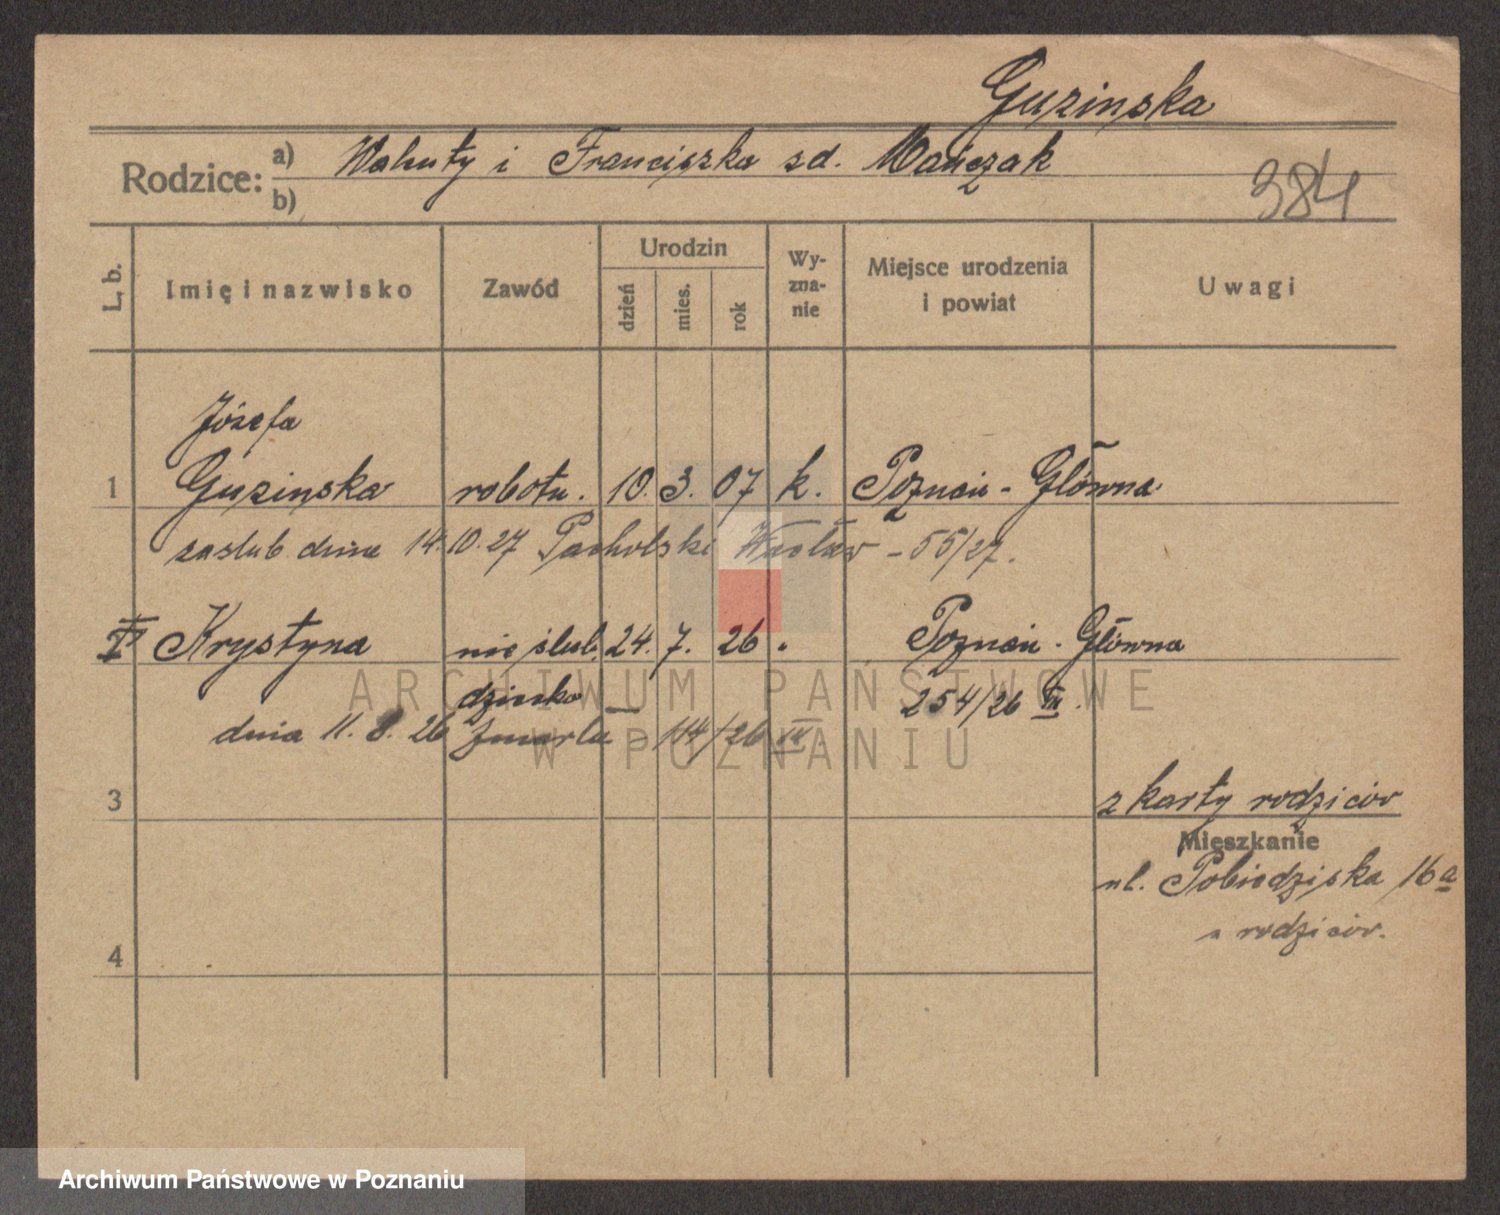 Guzinska
Rodzice: a) Walenty i Franciszka zd. Mańczak
b)
384
L. b.
Imię i nazwisko
Zawód
Urodzin
dzień
mies.
rok
Wy-
zna-
nie
Miejsce urodzenia
i powiat
Uwagi
Józefa
1 Guzinska robotn. 10. 3. 07 k. Poznań - Główna
zaślub dnia 14.10.27 Pacholski Wacław - 55/27.
II Krystyna nieślub. 24. 7. 26 " Poznań - Główna
dziecko 254/26 III.
dnia 11. 8. 26 zmarła - 114/26 IV.
3
z karty rodziców
Mieszkanie
ul. Pobiedziska 16a
u rodziców.
4
ARCHIWUM PAŃSTWOWE
W POZNANIU
Archiwum Państwowe w Poznaniu